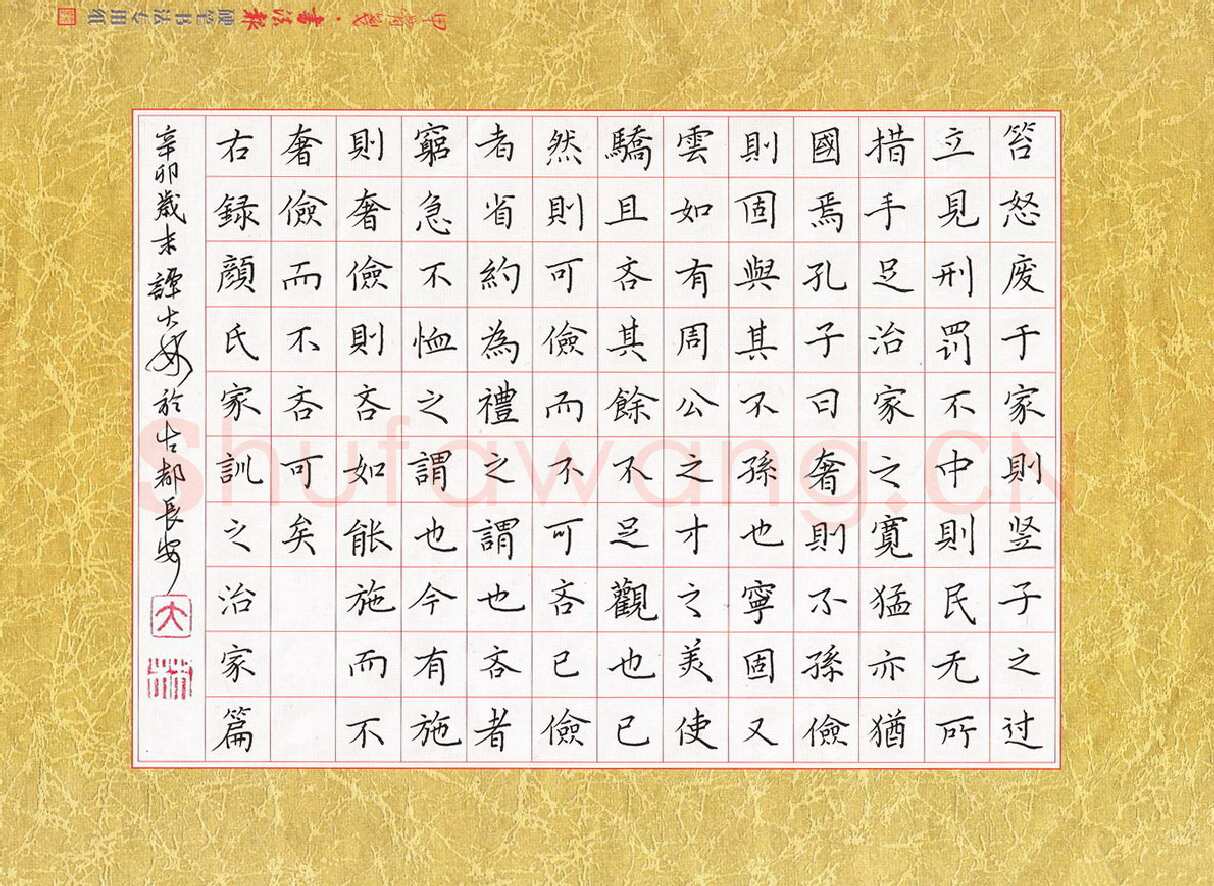 笞怒废于家則竖子之过
立見刑罚不中則民无所
措手足治家之寬猛亦猶
國焉孔子曰奢則不孫儉
則固與其不孫也寧固又
雲如有周公之才之美使
驕且吝其餘不足觀也已
然則可儉而不可吝已儉
者省約為禮之謂也吝者
窮急不恤之謂也今有施
則奢儉則吝如能施而不
奢儉而不吝可矣
右録顔氏家訓之治家篇
辛卯歲末譚大安於古都長安
大
書法報
硬笔书法专用纸
Shufawang.CN